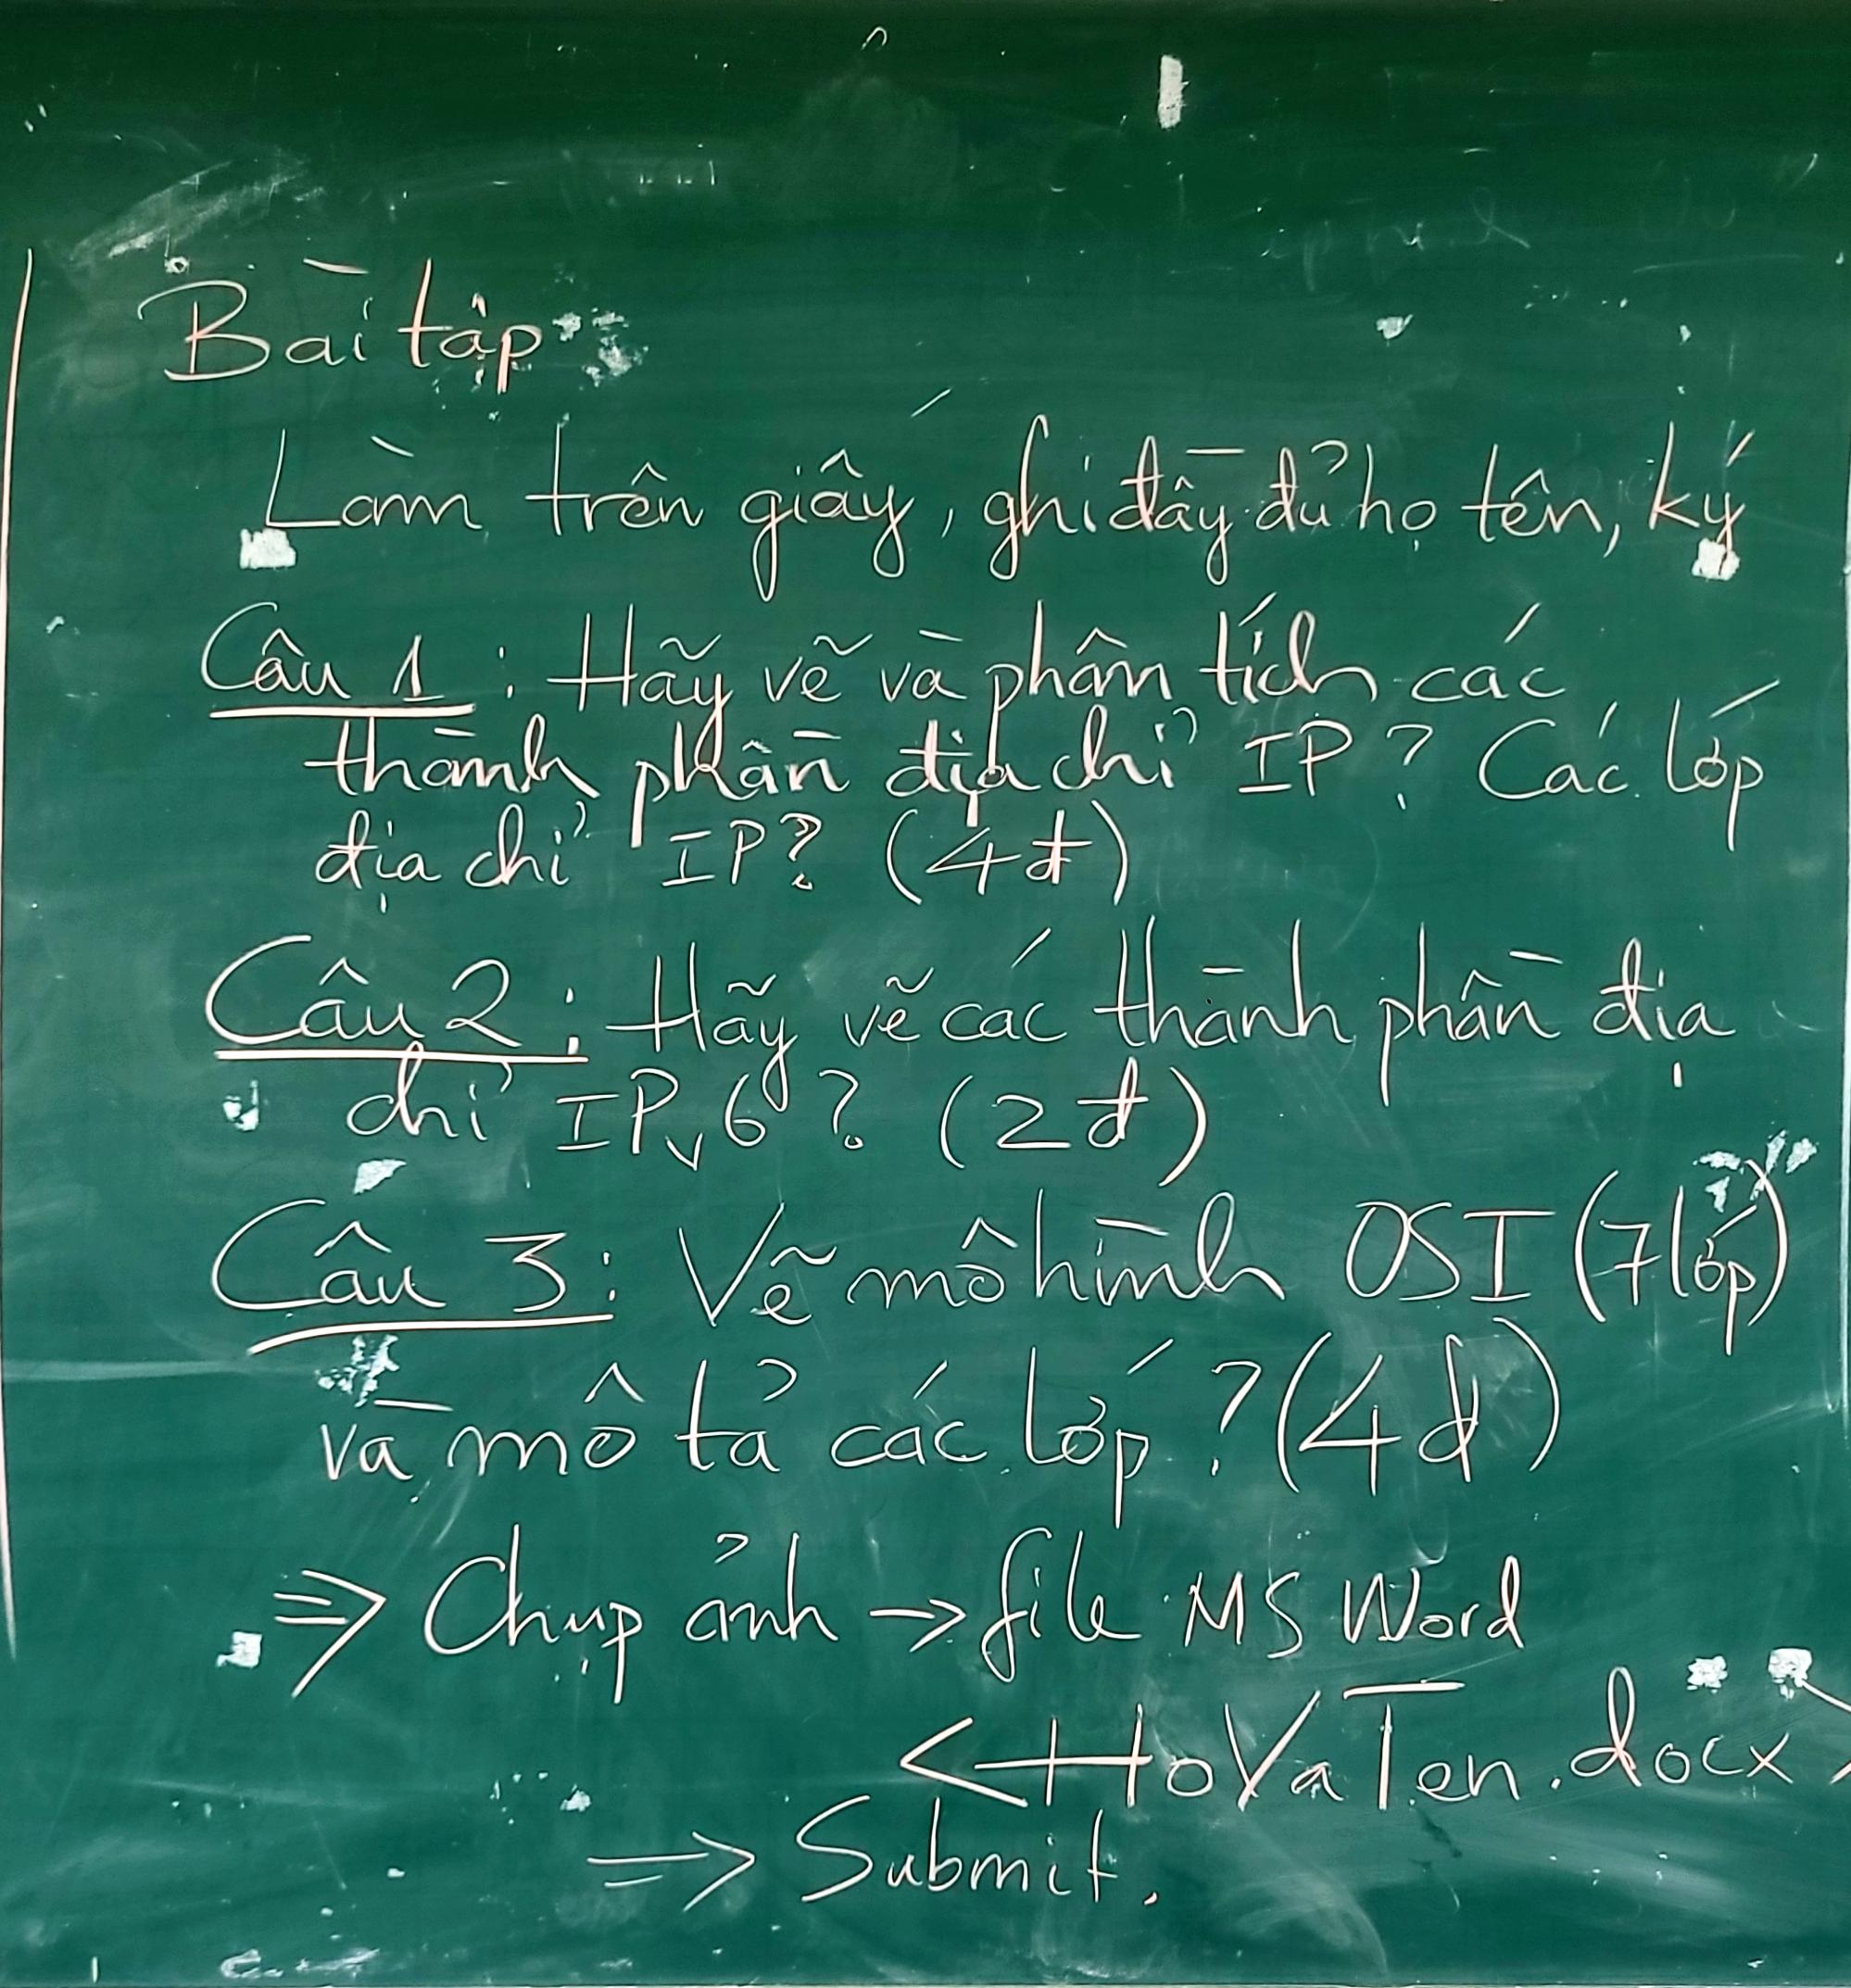 Bài tập:
Làm trên giấy, ghi đầy đủ họ tên, ký
Câu 1: Hãy vẽ và phân tích các
thành phần địa chỉ IP? Các lớp
địa chỉ IP? (4đ)
Câu 2: Hãy vẽ các thành phần địa
chỉ IPv6? (2đ)
Câu 3: Vẽ mô hình OSI (7 lớp)
và mô tả các lớp? (4đ)
⇒ Chụp ảnh → file MS Word
<HoVaTen.docx>
⇒ Submit.